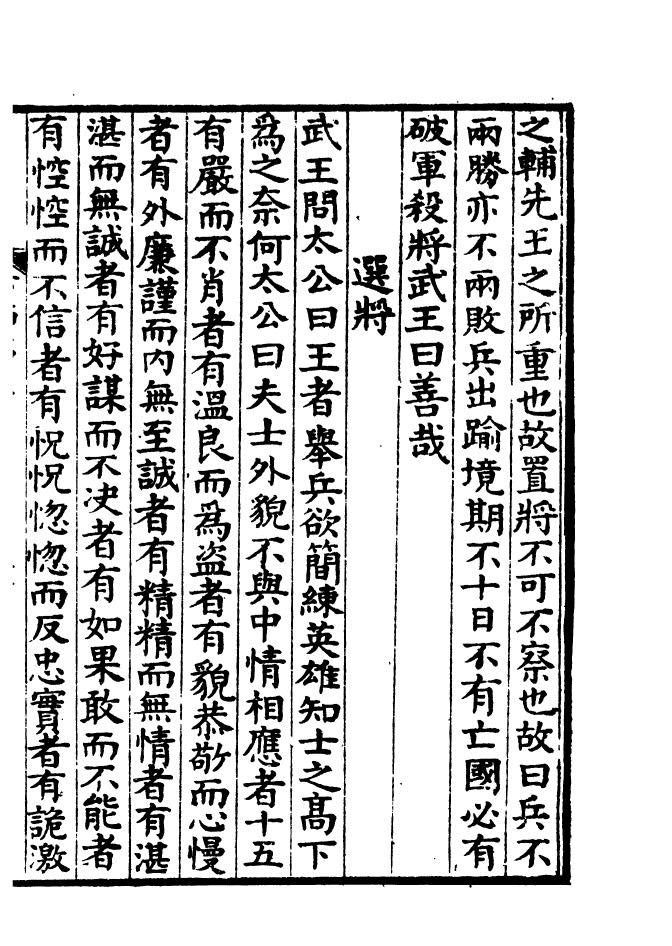 之輔先王之所重也故置將不可不察也故曰兵不
兩勝亦不兩敗兵出踰境期不十日不有亡國必有
破軍殺將武王曰善哉
選將
武王問太公曰王者舉兵欲簡練英雄知士之髙下
爲之奈何太公曰夫士外貌不與中情相應者十五
有嚴而不肖者有溫良而爲盜者有貌恭敬而心慢
者有外廉謹而内無至誠者有精精而無情者有湛
湛而無誠者有好謀而不决者有如果敢而不能者
有悾悾而不信者有怳怳惚惚而反忠實者有詭激